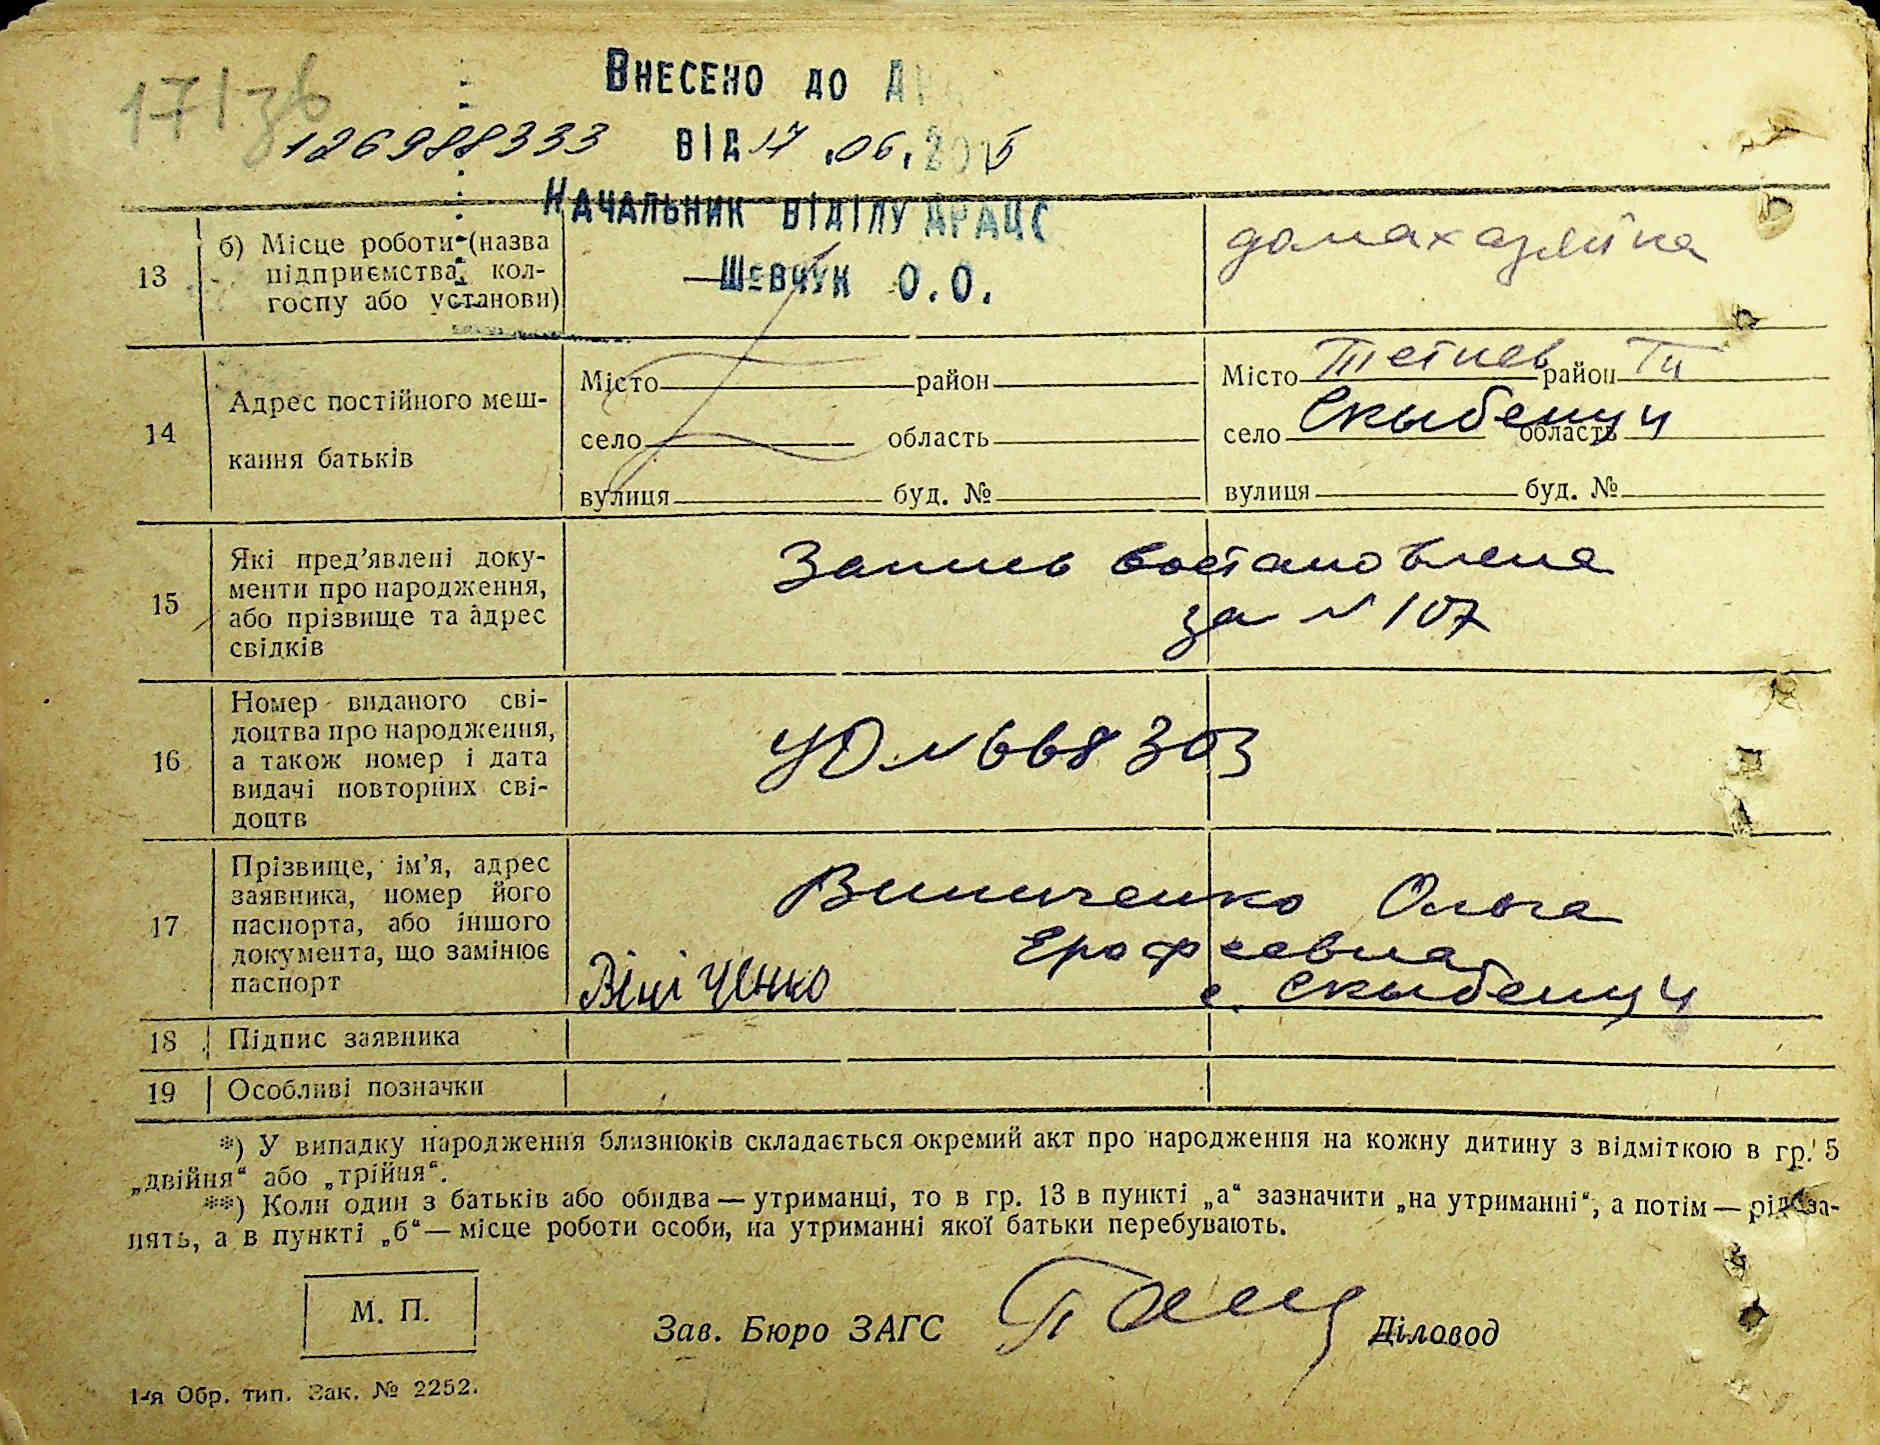 171 зв
Внесено до ДРА
126988333 від 17.06.2015
Начальник відділу ДРАЦС
Шевчук О.О.
13
б) Місце роботи (назва
підприємства, кол-
госпу або установи)
домахазяйка
14
Адрес постійного меш-
кання батьків
Місто район
село область
вулиця буд. №
Місто Тетиев район
село Скыбенцы область
вулиця буд. №
15
Які пред’явлені доку-
менти про народження,
або прізвище та адрес
свідків
Запись востановлена
за № 107
16
Номер виданого сві-
доцтва про народження,
а також номер і дата
видачі повторних сві-
доцтв
УЮ № 668303
17
Прізвище, ім’я, адрес
заявника, номер його
паспорта, або іншого
документа, що замінює
паспорт
Виниченко Ольга
Ерофеевна
Вініченко с. Скыбенцы
18 Підпис заявника
19 Особливі позначки
*) У випадку народження близнюків складається окремий акт про народження на кожну дитину з відміткою в гр. 5
„двійня“ або „трійня“.
**) Коли один з батьків або обидва — утриманці, то в гр. 13 в пункті „а“ зазначити „на утриманні“, а потім — рід за-
нять, а в пункті „б“ — місце роботи особи, на утриманні якої батьки перебувають.
М. П.
Зав. Бюро ЗАГС Діловод
1-я Обр. тип. Зак. № 2252.